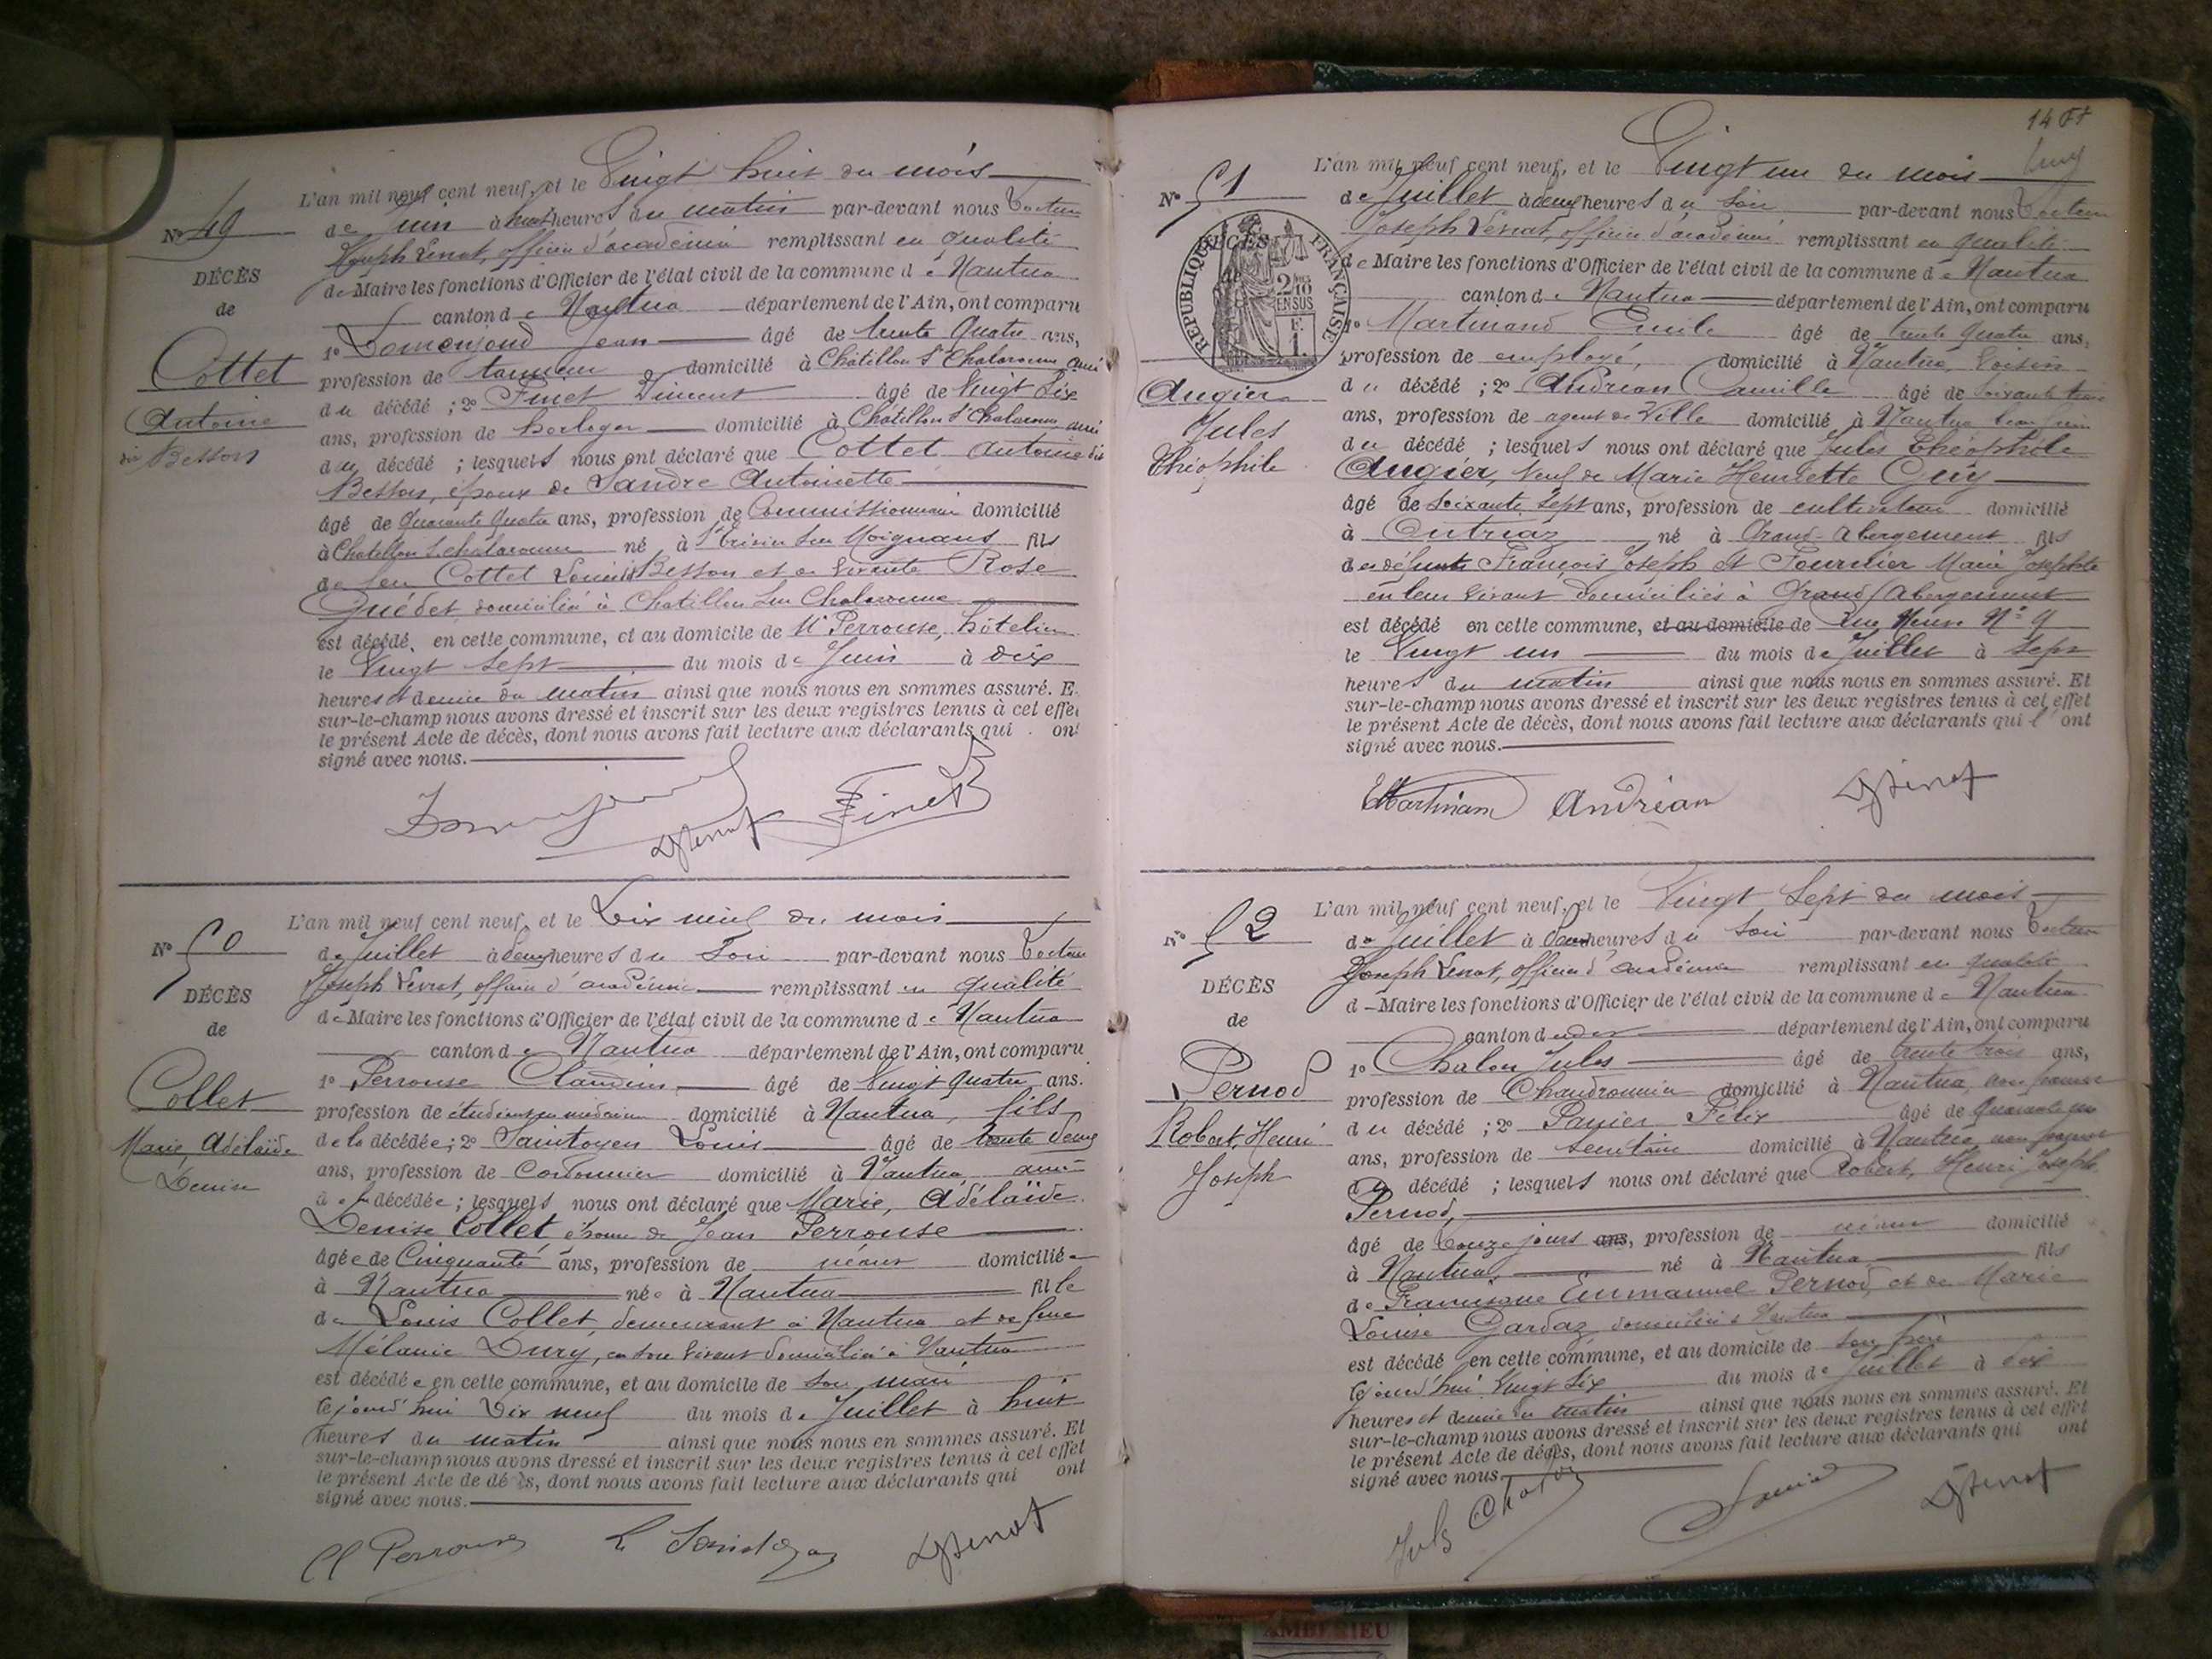 N° 49
DÉCÈS
de
Cottet
Antoine
dit Besson
L'an mil neuf cent neuf, et le Vingt huit du mois
de Juin à huit heures du matin par-devant nous Docteur
Joseph Levrat, officier d'académie remplissant en qualité
de Maire les fonctions d'Officier de l'état civil de la commune de Nantua
canton de Nantua département de l'Ain, ont comparu
1° Domenjoud Jean âgé de trente quatre ans,
profession de tanneur domicilié à Châtillon s/ Chalaronne ami
du décédé ; 2° Finet Vincent âgé de Vingt Six
ans, profession de horloger domicilié à Châtillon s/ Chalaronne ami
du décédé ; lesquels nous ont déclaré que Cottet Antoine dit
Besson, époux de Sandre Antoinette
âgé de Quarante Quatre ans, profession de Commissionnaire domicilié
à Chatillon s. chalaronne né à St Trivier sur Moignans fils
de feu Cottet Louis dit Besson et de vivante Rose
Guédet, domiciliée à Chatillon sur Chalaronne
est décédé, en cette commune, et au domicile de Mr Perrouse, hôtelier
le Vingt Sept du mois de Juin à dix
heures et demie du matin ainsi que nous nous en sommes assuré. E
sur-le-champ nous avons dressé et inscrit sur les deux registres tenus à cet effe
le présent Acte de décès, dont nous avons fait lecture aux déclarants qui ont
signé avec nous.
Finet
N° 50
DÉCÈS
de
Collet
Marie, Adélaïde
Denise
L'an mil neuf cent neuf, et le Dix neuf du mois
de Juillet à deux heures du Soir par-devant nous Docteur
Joseph Levrat, officier d'académie remplissant en qualité
de Maire les fonctions d'Officier de l'état civil de la commune de Nantua
canton de Nantua département de l'Ain, ont comparu
1° Perrouse Claudius âgé de Vingt quatre ans.
profession de étudiant en médecine domicilié à Nantua, fils
de la décédée ; 2° Saintoyen Louis âgé de trente deux
ans, profession de Cordonnier domicilié à Nantua, ami
de la décédée ; lesquels nous ont déclaré que Marie, Adélaïde
Denise Collet, épouse de Jean Perrouse
âgée de Cinquante ans, profession de néant domiciliée
à Nantua née à Nantua fille
de Louis Collet, demeurant à Nantua et de feue
Mélanie Dury, en son vivant domiciliée à Nantua
est décédée en cette commune, et au domicile de son mari
cejourd'hui Dix neuf du mois de Juillet à huit
heures du matin ainsi que nous nous en sommes assuré. Et
sur-le-champ nous avons dressé et inscrit sur les deux registres tenus à cet effet
le présent Acte de décès, dont nous avons fait lecture aux déclarants qui ont
signé avec nous.
Cl Perrouse
N° 51
DÉCÈS
RÉPUBLIQUE FRANÇAISE
2/10
EN SUS
F.
1.
Augier
Jules
Théophile
L'an mil neuf cent neuf, et le Vingt un du mois
de Juillet à deux heures du soir par-devant nous Docteur
Joseph Levrat, officier d'académie remplissant en qualité
de Maire les fonctions d'Officier de l'état civil de la commune de Nantua
canton de Nantua département de l'Ain, ont comparu
1° Martinand Emile âgé de trente quatre ans,
profession de employé, domicilié à Nantua, voisin
du décédé ; 2° Andréan Camille âgé de Soixante trois
ans, profession de agent de Ville domicilié à Nantua beau frère
du décédé ; lesquels nous ont déclaré que Jules Théophile
Augier, Veuf de Marie Henriette Guy
âgé de Soixante Sept ans, profession de cultivateur domicilié
à Outriaz né à Grand-Abergement fils
des défunts François Joseph et Fournier Marie Josephte
en leur vivant domiciliés à Grand Abergement
est décédé en cette commune, et au domicile de Rue Neuve N° 9
le Vingt un du mois de Juillet à Sept
heures du matin ainsi que nous nous en sommes assuré. Et
sur-le-champ nous avons dressé et inscrit sur les deux registres tenus à cet effet
le présent Acte de décès, dont nous avons fait lecture aux déclarants qui l'ont
signé avec nous.
Andréan
N° 52
DÉCÈS
de
Pernod
Robert, Henri
Joseph
L'an mil neuf cent neuf, et le Vingt Sept du mois
de Juillet à deux heures du soir par-devant nous Docteur
Joseph Levrat, officier d'académie remplissant en qualité
d Maire les fonctions d'Officier de l'état civil de la commune de Nantua
canton département de l'Ain, ont comparu
1° Chalon Jules âgé de trente trois ans,
profession de Chaudronnier domicilié à Nantua, non parent
du décédé ; 2° Panier Félix âgé de Quarante un
ans, profession de secrétaire domicilié à Nantua, non parent
du décédé ; lesquels nous ont déclaré que Robert, Henri Joseph
Pernod,
âgé de Douze jours ans, profession de néant domicilié
à Nantua, né à Nantua fils
de Francisque Emmanuel Pernod, et de Marie
Louise Gardaz domiciliés à Nantua
est décédé en cette commune, et au domicile de son père
cejourd'hui Vingt Six du mois de Juillet à dix
heures et demie du matin ainsi que nous nous en sommes assuré. Et
sur-le-champ nous avons dressé et inscrit sur les deux registres tenus à cet effet
le présent Acte de décès, dont nous avons fait lecture aux déclarants qui ont
signé avec nous.
Jules Chalon